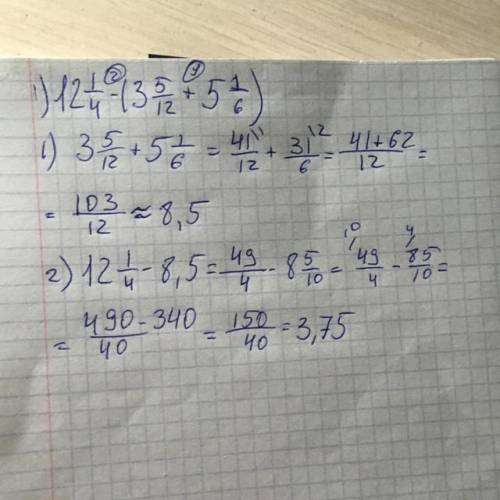 1) 12 1/4 - (3 5/12 + 5 1/6)
1) 3 5/12 + 5 1/6 = 41/12 + 31/6 = 41+62/12 =
= 103/12 ≈ 8,5
2) 12 1/4 - 8,5 = 49/4 - 8 5/10 = 49/4 - 85/10 =
= 490-340/40 = 150/40 = 3,75